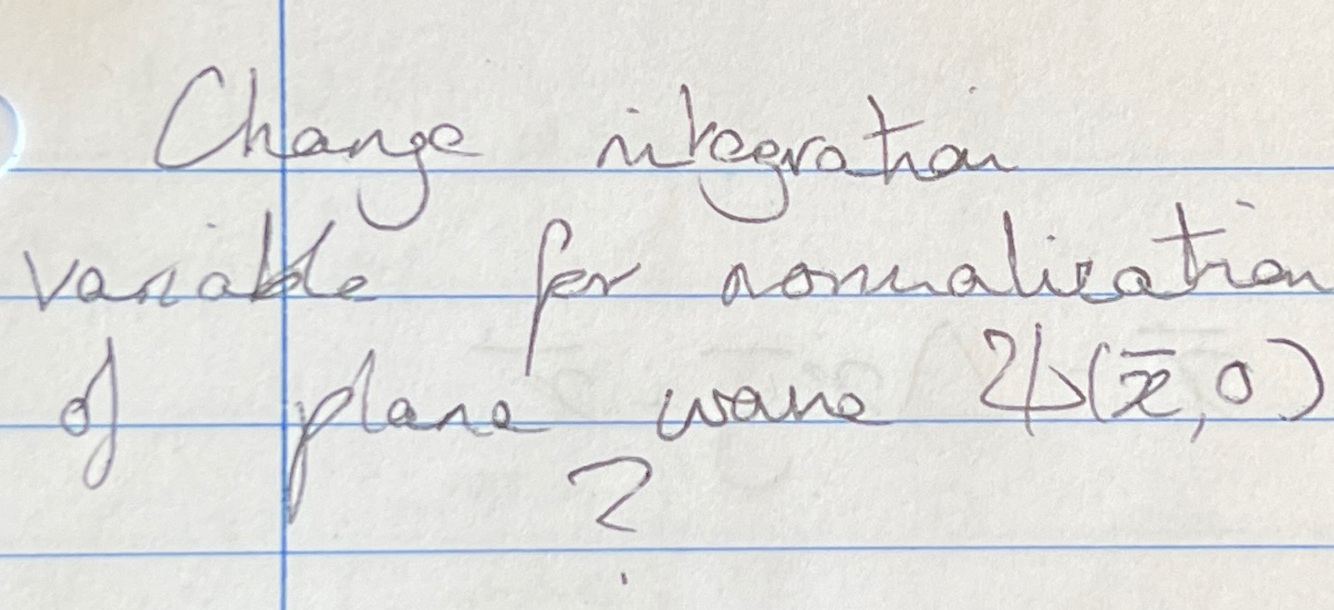 Change integration
variable for normalisation
of plane wave ψ(x̄,0)
?